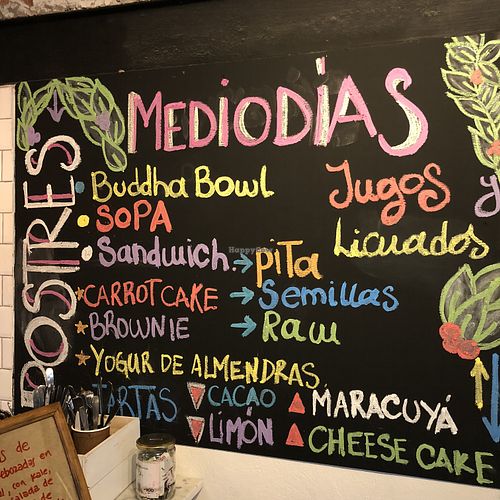 MEDIODÍAS
POSTRES
Buddha Bowl
SOPA
Sandwich → PiTa
→ Semillas
→ Raw
Jugos y
Licuados
CARROT CAKE
BROWNIE
YOGUR DE ALMENDRAS
TARTAS
CACAO
LIMÓN
MARACUYÁ
CHEESE CAKE
s de
ebozadas en
, con kale,
salada de
de
HappyCow